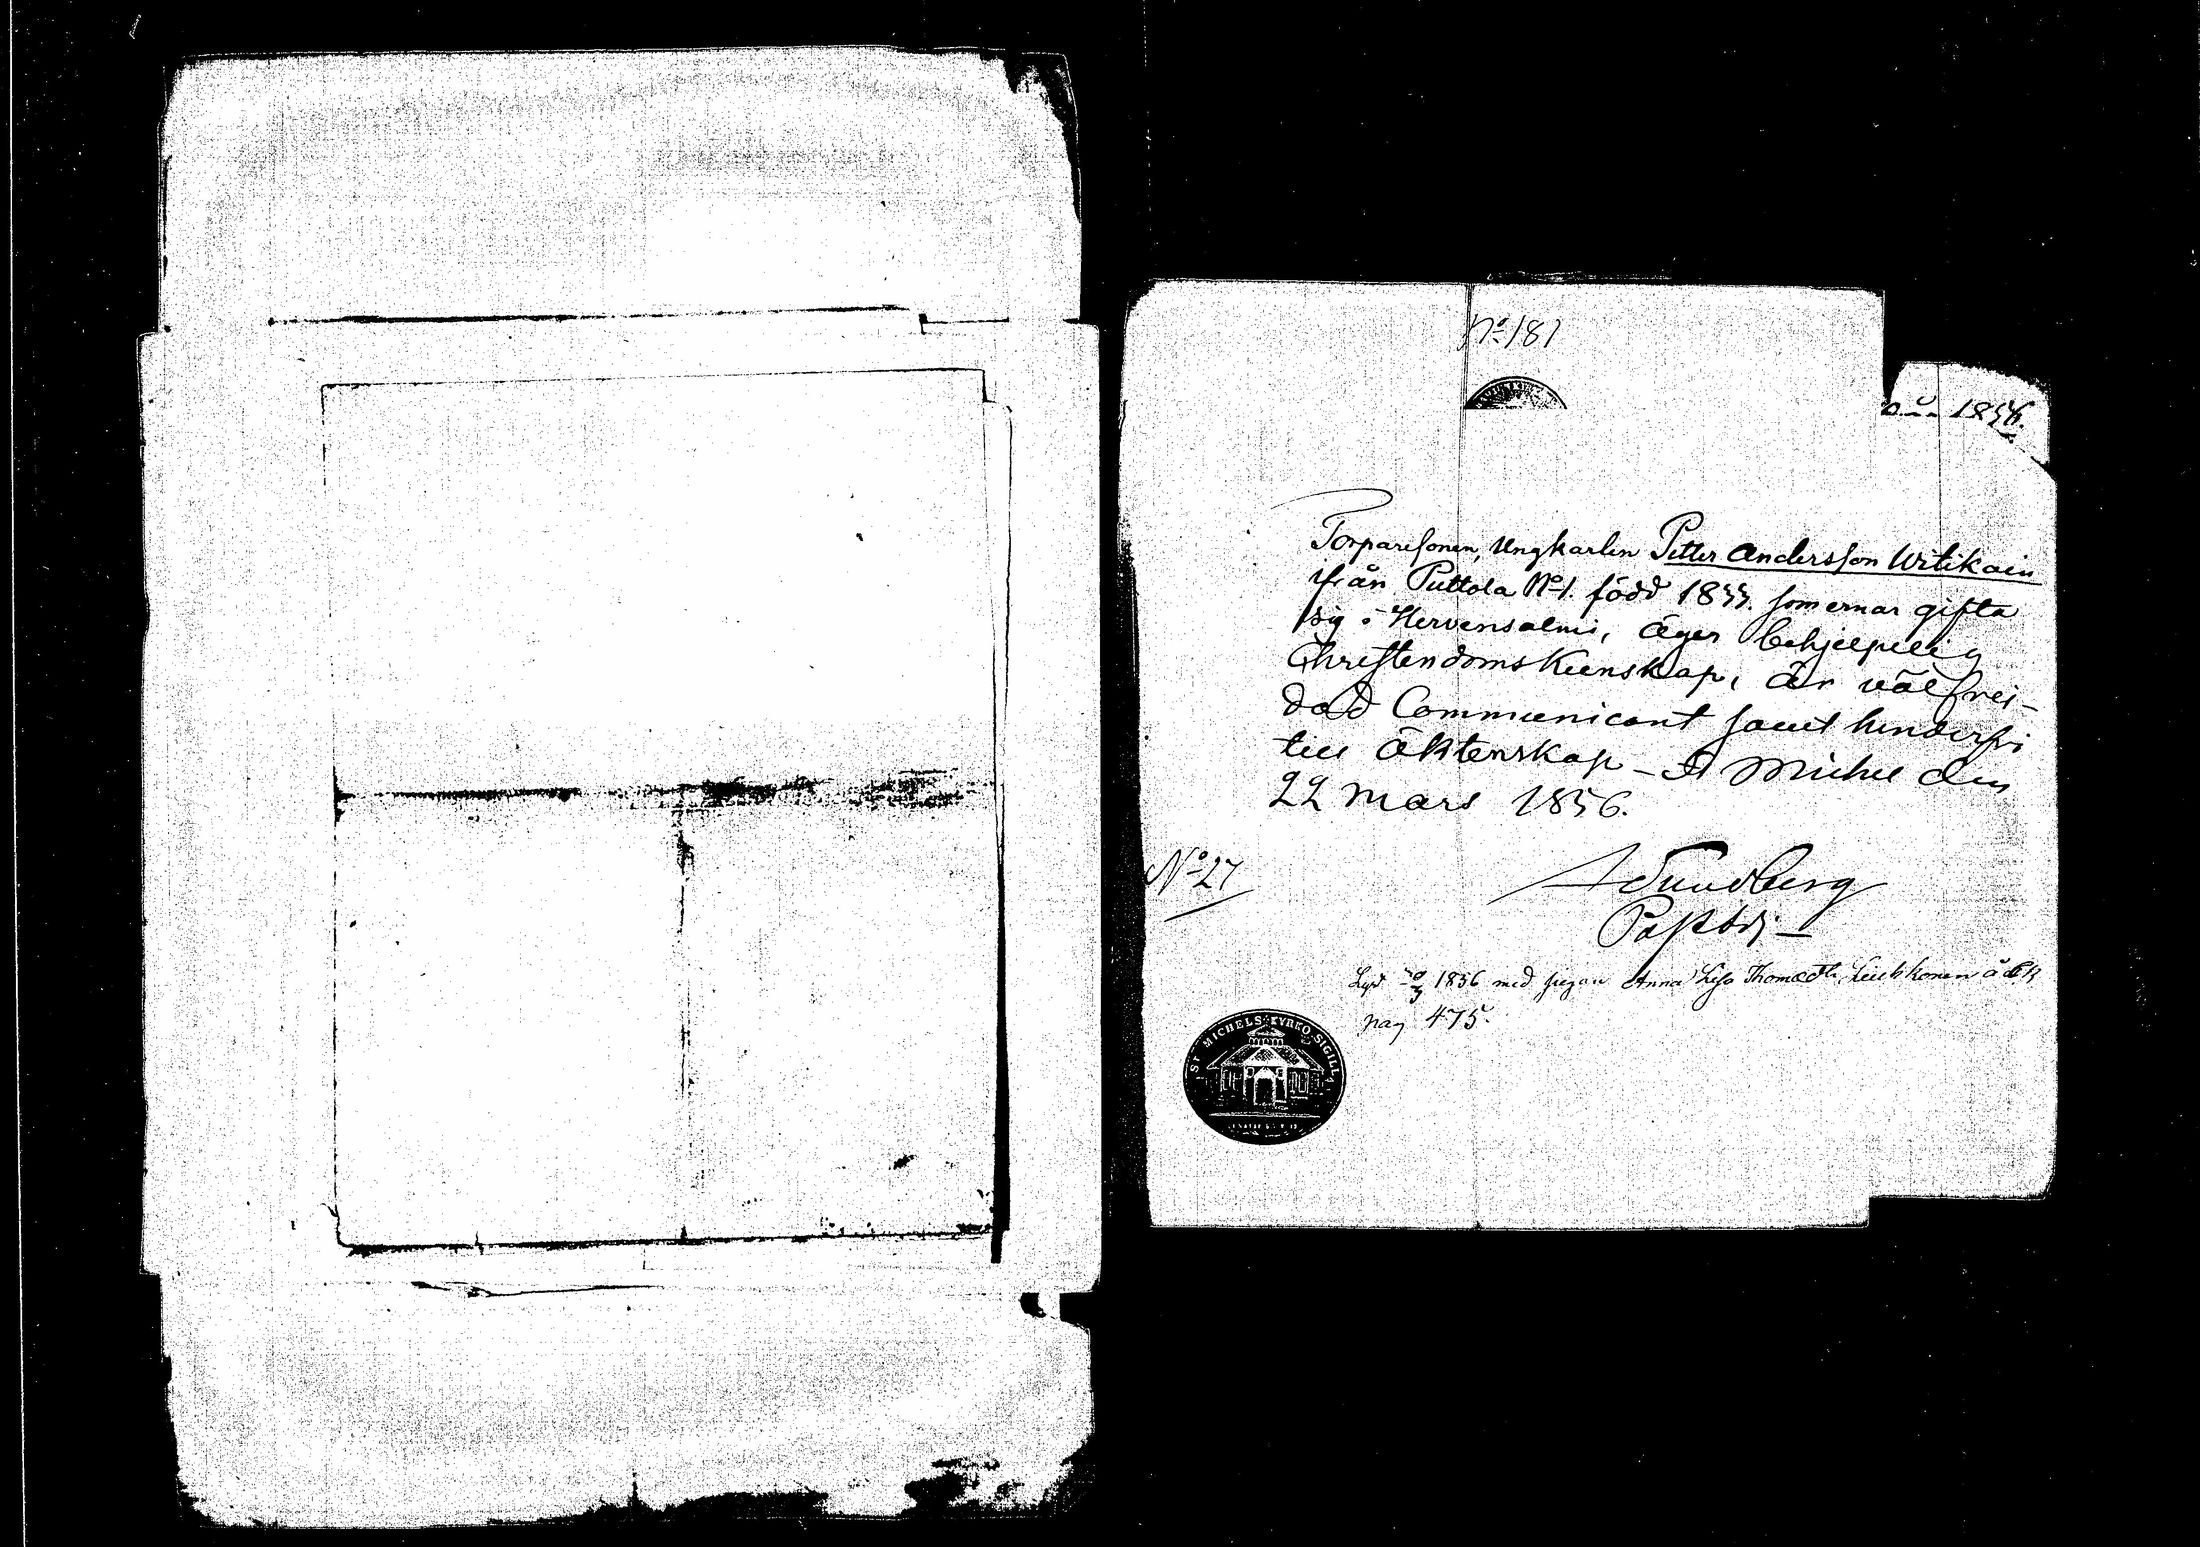 No 181
1856.
Torparesonen, Ungkarlen Petter Andersson Witikain
ifrån Puttola No 1. född 1833. som ernar gifta
sig i Hirvensalmi, äger behjelpelig
Christendoms Kunskap, är välfrei-
dad Communicant samt hinderfri
till Äktenskap - St Michel den
22 Mars 1856.
No 27
Sundberg
Pastor
Lyst 1856 med pigan Anna Lisa Thomædr
pag 475.
ST MICHELS KYRKO SIGILL